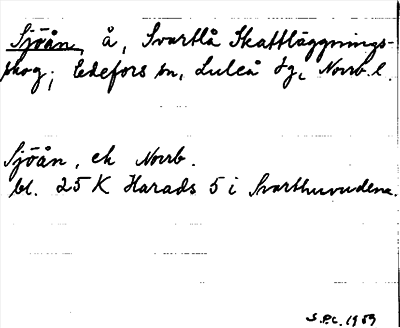 Sjöån, å, Svartlå Skattläggnings-
skog; Edefors sn, Luleå tg, Norrb. l.
Sjöån, ek Norrb.
bl. 25 K Harads 5 i Svarthuvudena.
S.P.C. 1959